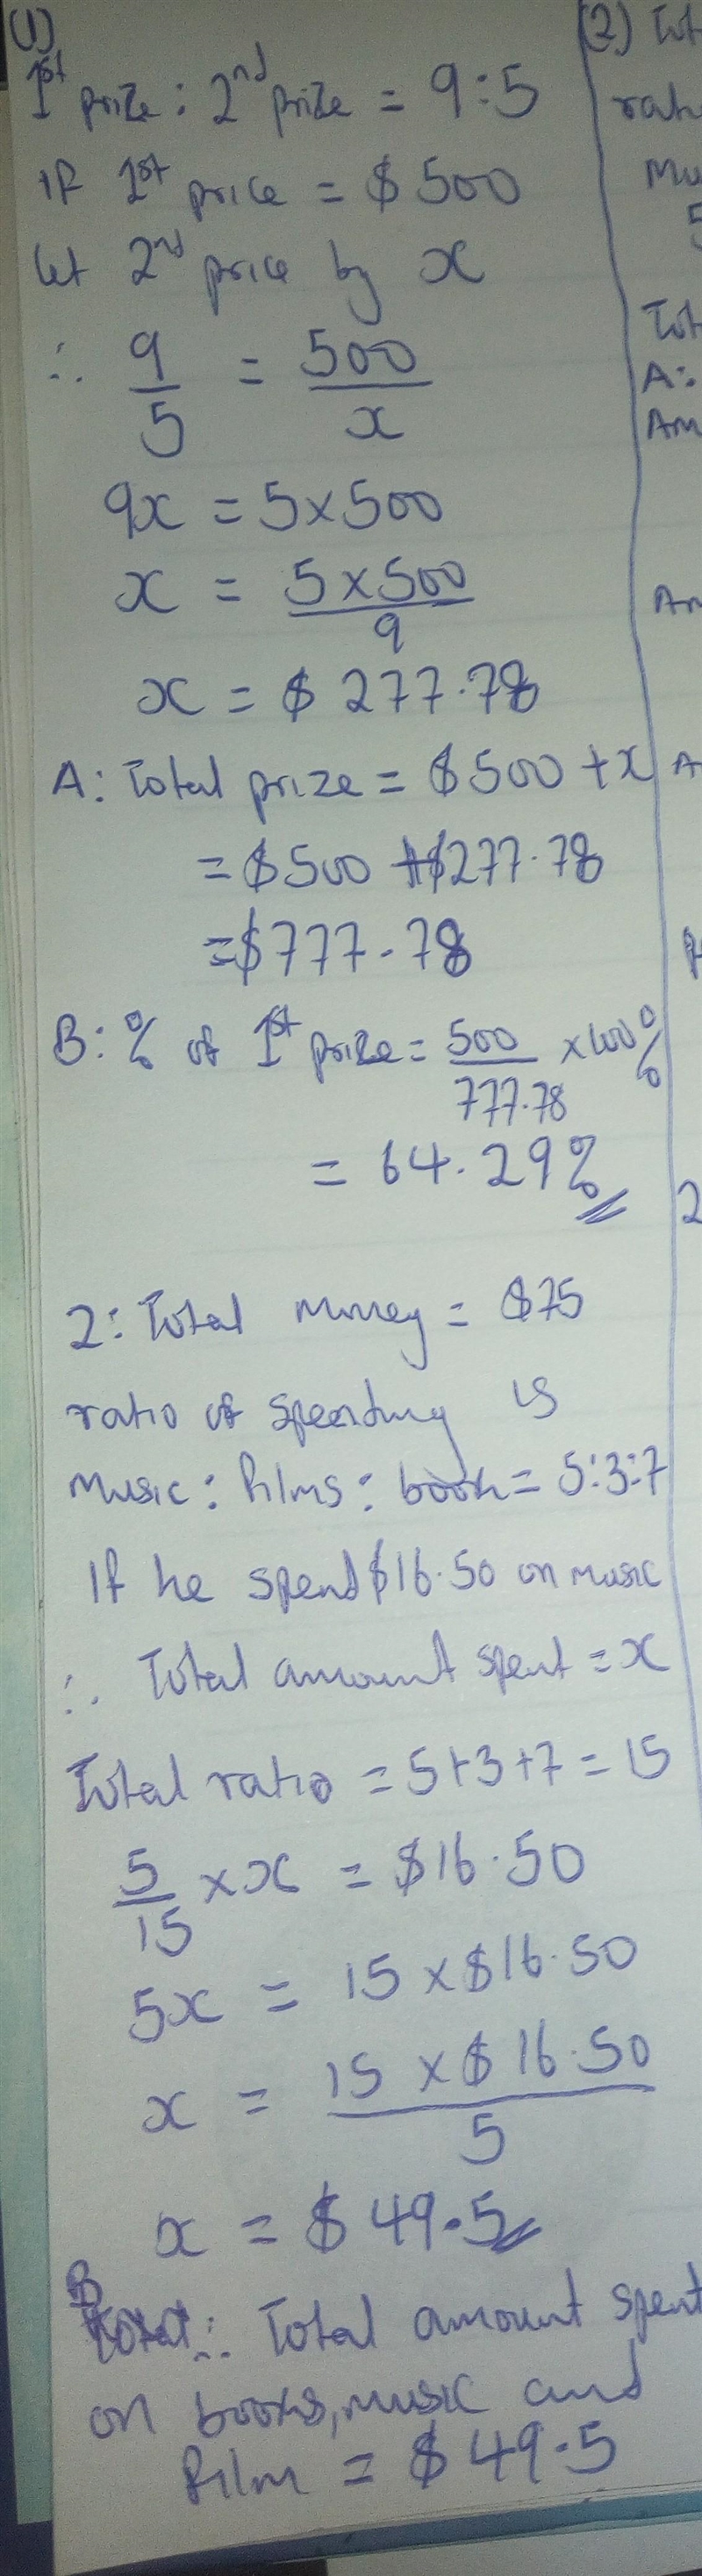 (1)
1st prize : 2nd prize = 9:5
If 1st price = $500
let 2nd price by x
∴ 9/5 = 500/x
9x = 5×500
x = 5×500/9
x = $277.78
A: Total prize = $500 + x
= $500 + $277.78
= $777.78
B: % of 1st prize = 500/777.78 × 100%
= 64.29%
2: Total money = $75
ratio of spending is
music : films : book = 5:3:7
If he spend $16.50 on music
∴ Total amount spent = x
Total ratio = 5+3+7 = 15
5/15 × x = $16.50
5x = 15 × $16.50
x = 15 × $16.50/5
x = $49.5
B
∴ Total amount spent
on books, music and
film = $49.5
(2)
A:
2